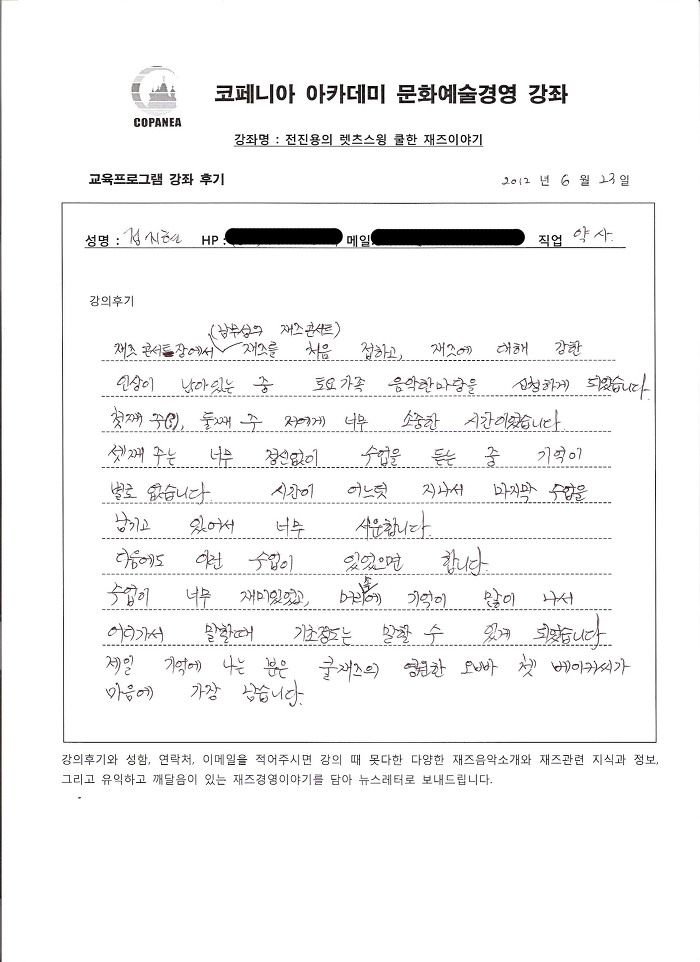 COPANEA
코페니아 아카데미 문화예술경영 강좌
강좌명 : 전진용의 렛츠스윙 쿨한 재즈이야기
교육프로그램 강좌 후기
2012 년 6 월 23 일
성명 : 정지현 HP : 메일 직업 약사.
강의후기
(남무성의 재즈콘서트)
재즈 콘서트장에서 재즈를 처음 접하고, 재즈에 대해 강한
인상이 남아있는 중 토요가족 음악한마당을 신청하게 되었습니다.
첫째 주, 둘째 주 저에게 너무 소중한 시간이었습니다.
셋째 주는 너무 정신없이 수업을 듣는 중 기억이
별로 없습니다 시간이 어느덧 지나서 마지막 수업을
남기고 있어서 너무 서운합니다.
다음에도 이런 수업이 있었으면 합니다.
수업이 너무 재미있었고, 머리속에 기억이 많이 나서
어디가서 말할때 기초정도는 말할 수 있게 되었습니다
제일 기억에 나는 분은 쿨재즈의 영원한 오빠 쳇 베이커씨가
마음에 가장 남습니다.
강의후기와 성함, 연락처, 이메일을 적어주시면 강의 때 못다한 다양한 재즈음악소개와 재즈관련 지식과 정보,
그리고 유익하고 깨달음이 있는 재즈경영이야기를 담아 뉴스레터로 보내드립니다.